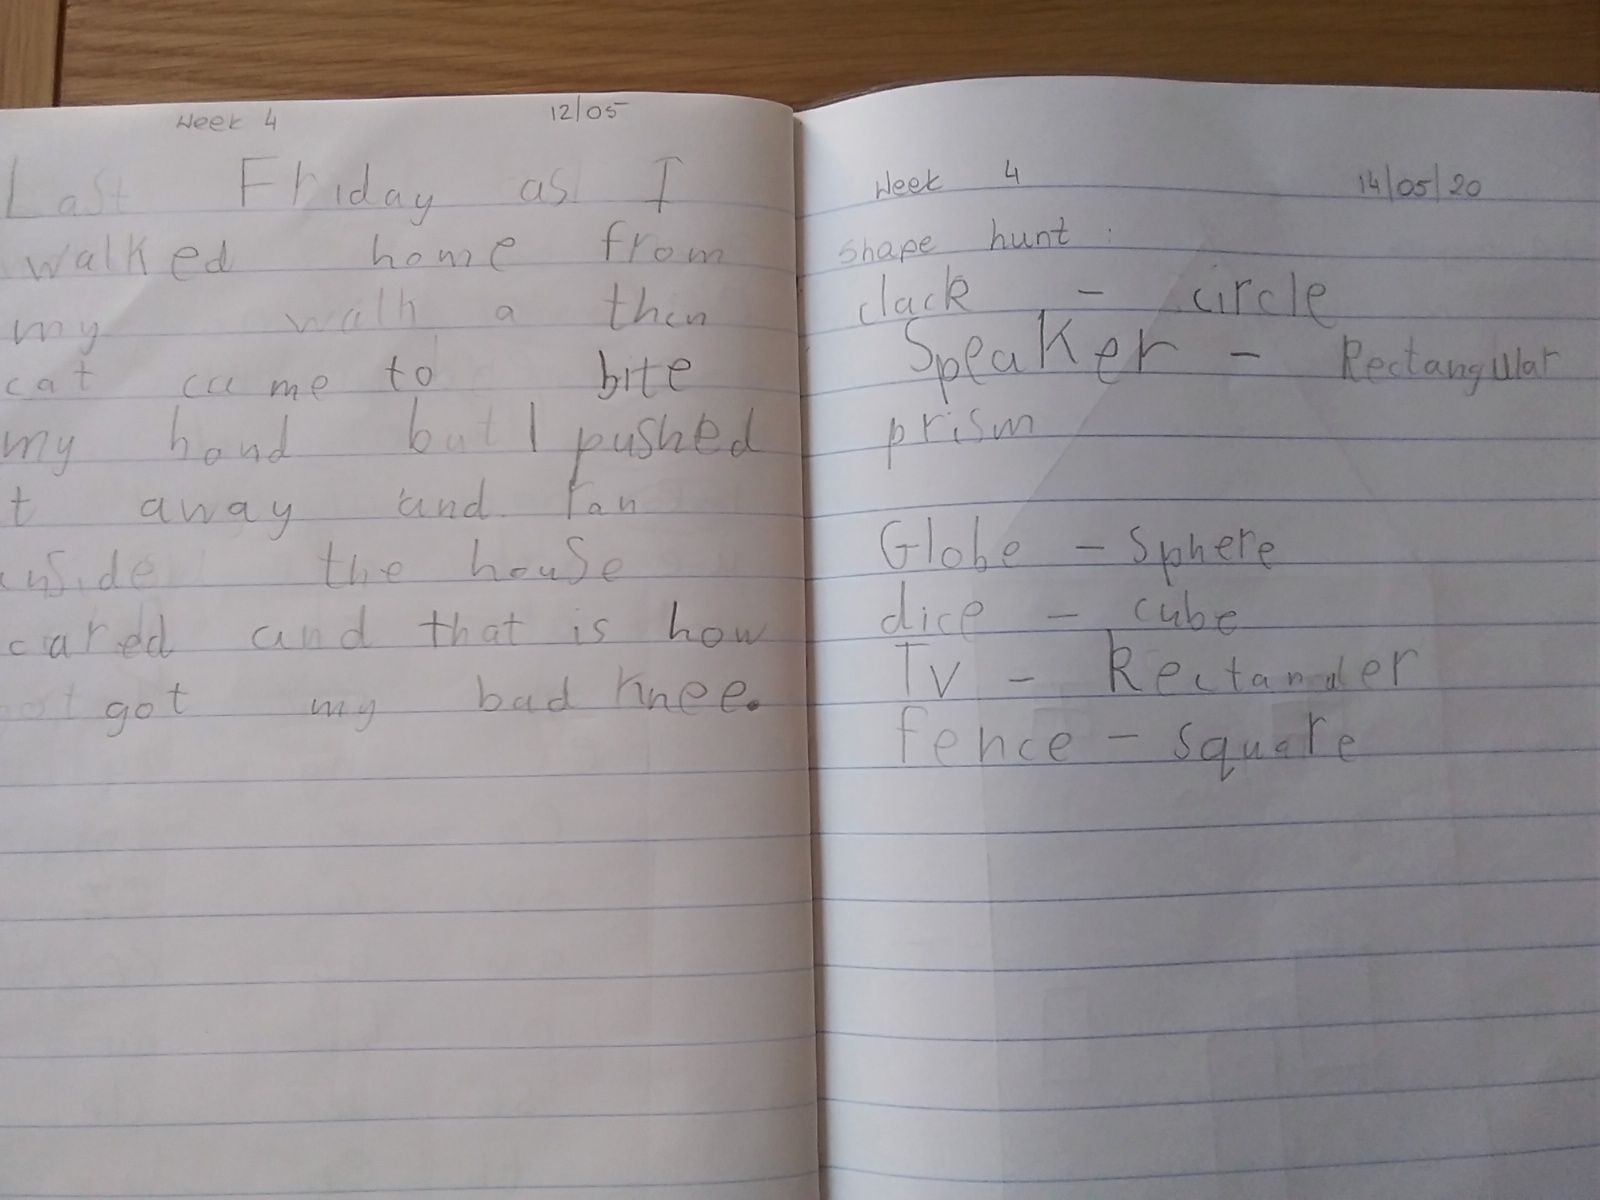 Week 4 12/05
Last Friday as I
walked home from
my walk a then
cat came to bite
my hand but I pushed
t away and ran
inside the house
cared and that is how
got my bad knee.
Week 4 14/05/20
shape hunt :
clack - circle
Speaker - Rectangular
prism
Globe - Sphere
dice - cube
Tv - Rectander
fence - square